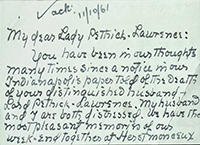 Ack. 11/10/61
My dear Lady Pethick-Lawrence:
You have been in our thoughts
many times since a notice in our
Indianapolis paper told of the death
of your distinguished husband -
Lord Pethick-Lawrence. My husband
and I are both distressed. We have the
most pleasant memories of our
week-end together at Herstmonceux